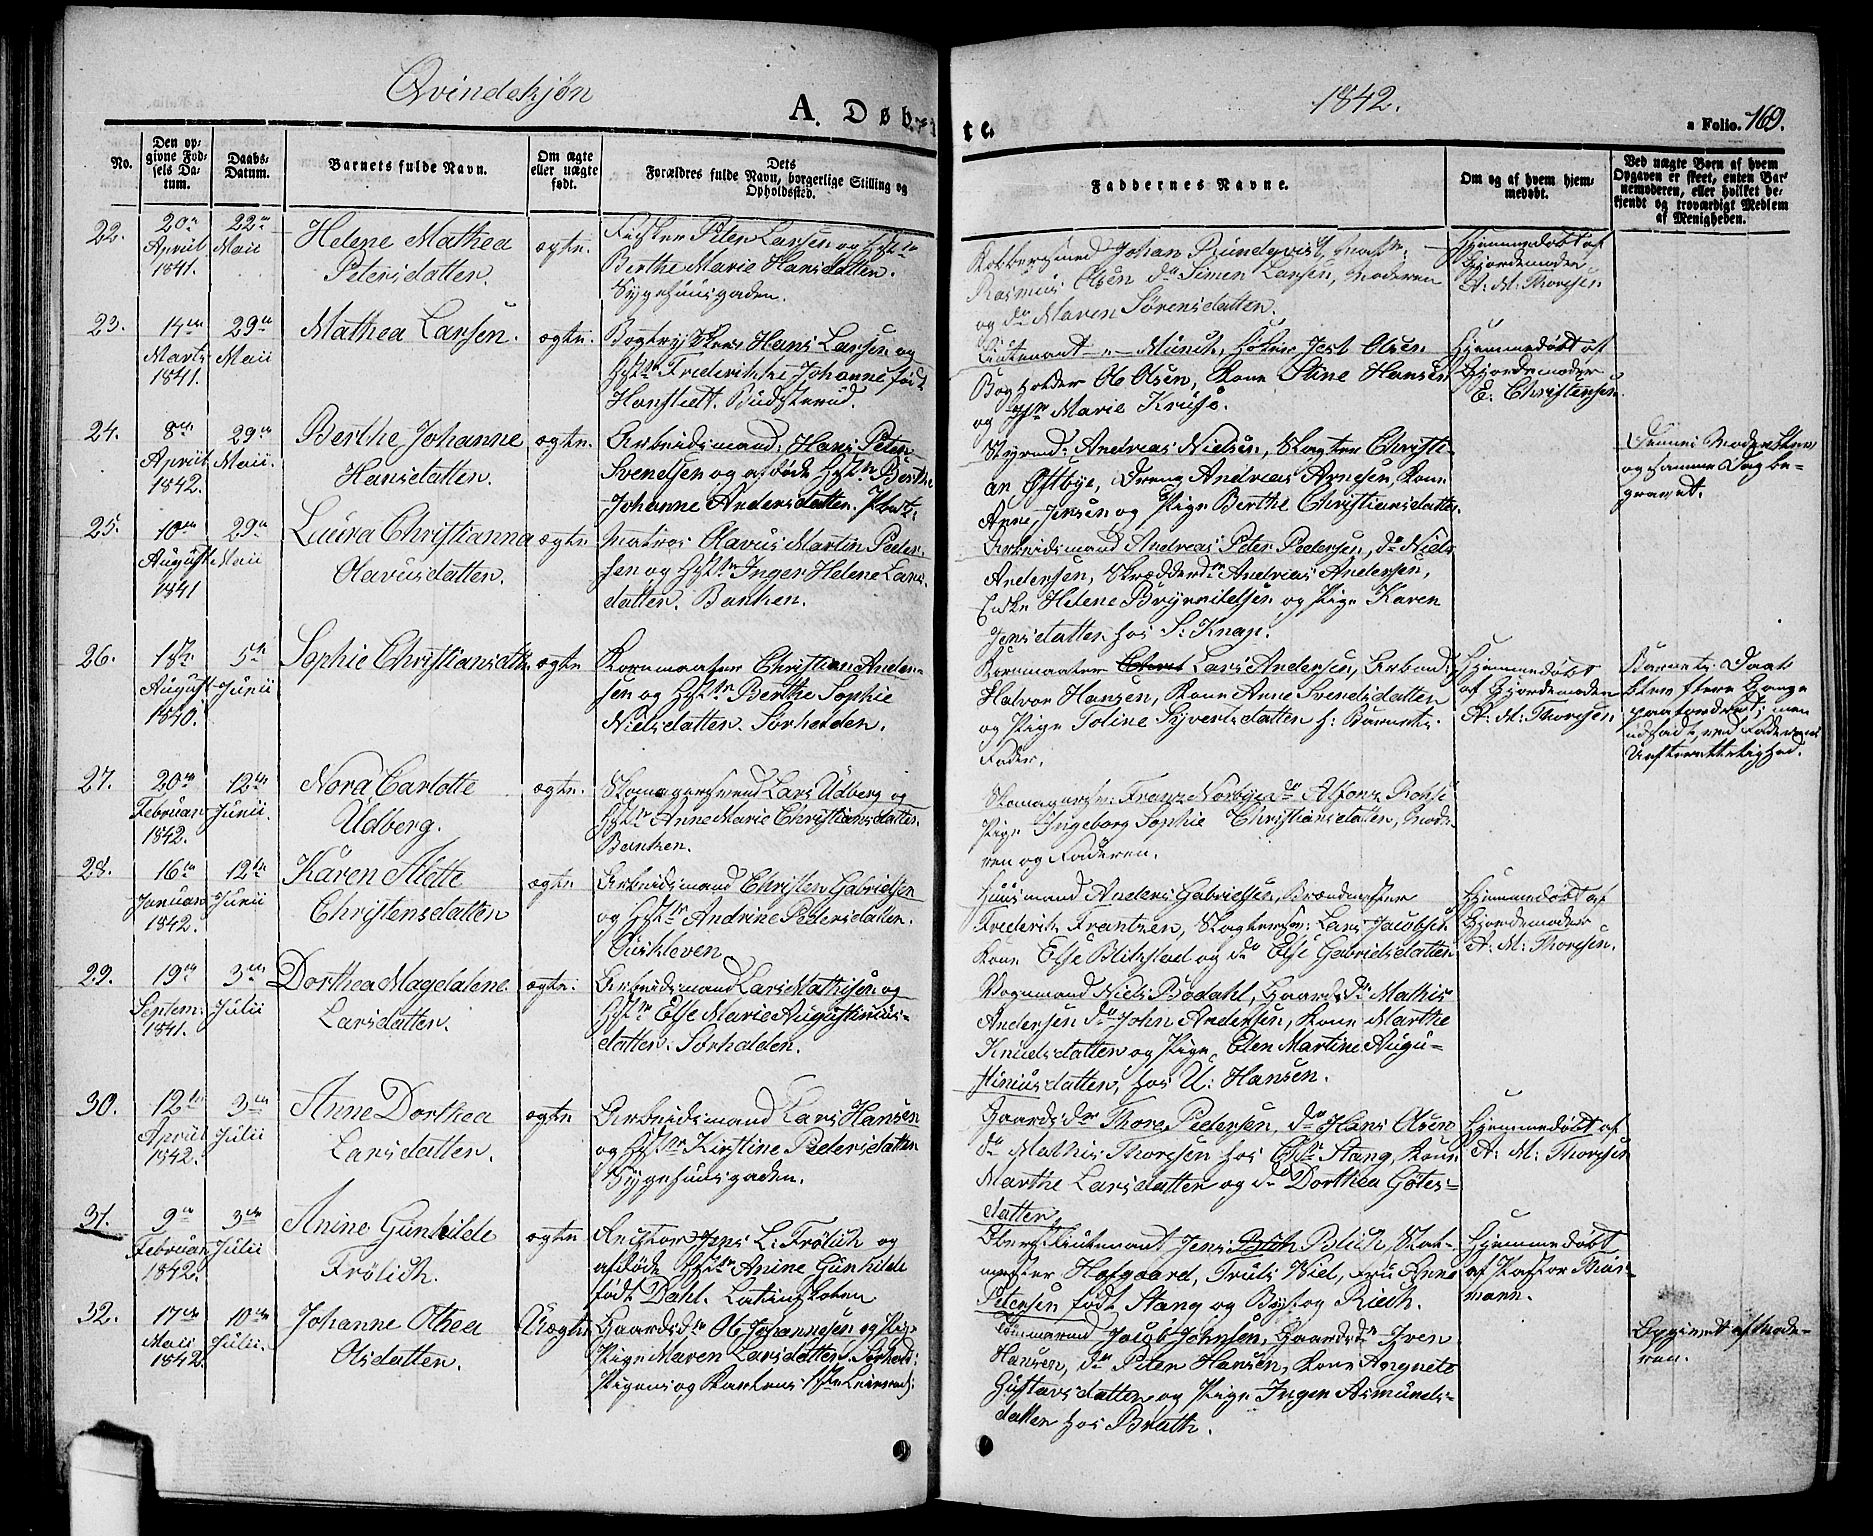 Qvindekjøn
A. Døbte.
1842.
a Folio. 169.
No.
Den opgivne Fødsels Datum.
Daabs-Datum.
Barnets fulde Navn.
Om ægte eller uægte født.
Dets Forældres fulde Navn, borgerlige Stilling og Opholdssted.
Faddernes Navne.
Om og af hvem hjemmedøbt.
Ved uægte Børn af hvem Opgaven er skeet, enten Barnemoderen, eller hvilket bekjendt og troværdigt Medlem af Menigheden.
22.
20de April 1841.
22de Maii
Helene Mathea
Petersdatter.
ægte.
Fisker Peter Larsen og Hst.
Berthe Marie Hansdatter.
Sygehuusgaden.
Johan Rundqvist,
Rasmus Olsen do Simen Larsen, Moderen
og do Maren Sørensdatter.
Hjemmedøbt af
Gjordemoder
A. M. Thoresen
23.
14de Marts 1841.
29de Maii
Mathea Larsen.
ægte.
Bogtrykker Hans Larsen og
Hst. Frederikke Johanne født
Lieutenant - " - Munch, Høker Jest Olsen
Bogholder Ole Olsen, Kone Stine Hansen
og Marie Kruse.
Hjemmedøbt af
Gjordemoder
E. Christensen.
24.
8de April 1842.
29de Maii.
Berthe Johanne
Hansdatter.
ægte.
Arbeidsmand Hans Peter
Svendsen og afdøde Hst. Berthe
Johanne Andersdatter.
Styrmd: Andreas Nielsen, Slagter Christi-
an Østbye, Dreng Andreas Arnesen, Kone
Anne Jensen og Pige Berthe Christiansdatter.
Denne's Moder blev
og samme Dag be-
gravet.
25.
10de August 1841
29de Maii
Laura Christianna
Olavusdatter.
ægte
Matros Olavus Martin Peder-
sen og Hst. Inger Helene Lars-
datter. Banken.
Arbeidsmand Andreas Peter Pedersen, do Niels
Andersen, Skrædder Andreas Andersen,
Enke Helene Brynnildsen og Pige Karen
Jensdatter hos S. Knap.
26.
18de August 1840.
5te Junii
Sophie Christiansdtr.
ægte
Kornmaaler Christian Ander-
sen og Hst. Berthe Sophie
Nielsdatter. Sørhalden.
Kornmaaler Lars Andersen, Arbmd:
Halvor Hansen, Kone Anne Svendsdatter
og Pige Toline Syvertsdatter f: Barnets
Fader.
Hjemmedøbt
af Gjordemoder
A. M. Thoresen
Barnets Daab
blev flere Gange
paafordret; men
udsadt ved Faderens
Uefterrettelighed.
27.
20de Februar 1842.
12te Junii.
Nora Carlotte
Udberg.
ægte.
Skomagersvend Lars Udberg og
Hst. Anne Marie Christiansdatter.
Banken.
Skomagersv: Franz Norbye do Alfons
Pige Ingeborg Sophie Christiansdatter, Mode-
ren og Faderen.
28.
16de Januar 1842.
12te Junii
Karen Mette
Christensdatter
ægte
Arbeidsmand Christen Gabrielsen
og Hst. Andrine Pedersdatter.
Huusmand Anders Gabrielsen, Brændmester
Frederik Frantzen, Slagtersv: Lars Jacobsen
Kone Else Blikstad og do Else Gabrielsdatter
Hjemmedøbt af
Gjordemoder
A. M. Thoresen.
29.
19de Septem: 1841.
3die Julii
Dorthea Magdalene
Larsdatter.
ægte.
Arbeidsmand Lars Mathisen og
Hst. Else Marie Augustinus-
datter. Sørhalden.
Vognmand Niels Bødahl, Gaardsdr. Mathis
Andersen do John Andersen, Kone Marthe
Knudsdatter og Pige Elen Martine Augu-
stinusdatter, hos U. Hansen.
30.
12te April 1842.
3die Julii
Anne Dorthea
Larsdatter.
ægte
Arbeidsmand Lars Hansen
og Hst. Kirstine Pedersdatter
Sygehuusgaden.
Gaardsdr. Thore Pedersen, do Hans Olsen
do Mathis Thoresen hos Stang, Kone
Marthe Larsdatter og do Dorthea Gotes-
datter
Hjemmedøbt af
A. M. Thoresen
31.
9de Februar 1842.
3die Julii
Anine Gunhilde
Frölich.
ægte
Jens L. Frölich og
afdøde Hst. Anine Gunhilde
født Dahl.
Oberstlieutenant Jens Blich Blich,
Hofgaard, Truls Wiel, Fru Anne
Petersen født Stang og Riech.
Hjemmedøbt
af Pastor
32.
17de Maii 1842
10de Julii.
Johanne Othea
Olsdatter.
Uægte
Gaardsdr. Ole Johannesen og
Pige Maren Larsdatter.
Pigens og Karlens 1ste Leiermaal.
Tømmermd Jacob Johnsen, Gaardsdr. Iver
Hansen, do Peter Hansen, Kone Angnete
Gustavsdatter og Pige Inger Asmunds-
datter hos Brath.
Opgivet af Mode-
ren.